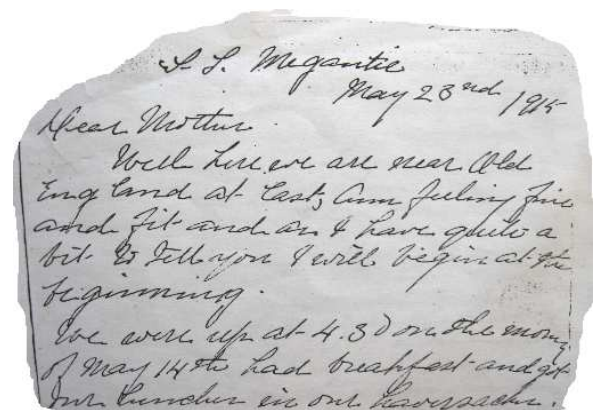 S. S. Megantic
May 23rd 1915
Dear Mother
Well here we are near Old
England at last, am feeling fine
and fit and as I have quite a
bit to tell you I will begin at the
beginning.
We were up at 4.30 on the morng
of May 14th had breakfast and got
our lunches in our haversacks.